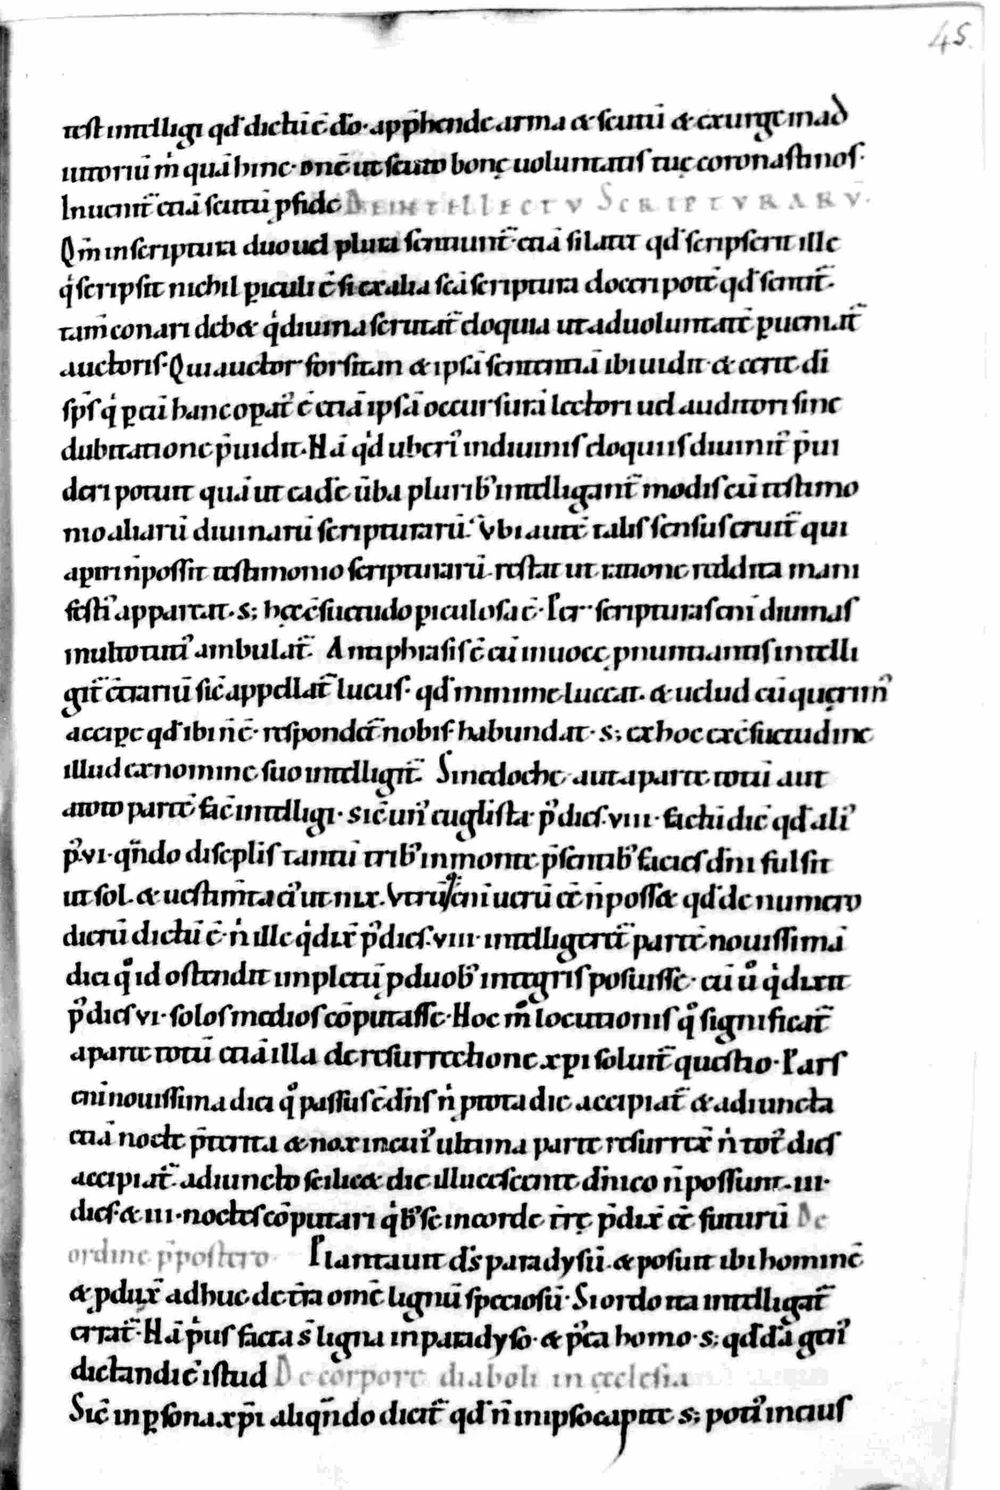 45.
test intelligi qđ dictū ē đo· app̄hende arma & scutū & exurge in ad
iutoriū m̉ quā hinc· dn̄e ut scuto bonę uoluntatis tuę coronasti nos·
Inuenit᷑ etiā scutū p fide DE INTELLECTV SCRIPTVRARV̄.
Qm̄ in scriptura duo uel plura sentiunt᷑ etiā si latet qđ senserit ille
q̉ scripsit nichil piculi ē si ex alia sc̄a scriptura doceri potē qđ sentit᷑·
tam̄ conari deb& q̉ diuina scrutat᷑ eloquia ut ad uoluntatē pueniat᷑
auctoris· Qui auctor forsitan & ipsā sententiā ibi uidit· & certe di
sp̄s q̉ p eū hanc opat᷑ ē etiā ipsā occursurā lectori uel auditori sine
dubitatione p̄uidit· Nā q̉d uberi᷒ in diuinis eloquiis diuinit᷒ p̄ui
deri potuit quā ut eadē ūba plurib᷒ intelligant᷑ modis cū testimo
nio aliarū diuinarū scripturarū· Vbi autē talis sensus eruit᷑ qui
aperiri n̄ possit testimonio scripturarū· restat ut ratione reddita mani
fest᷒ appareat· s; hęc ēsuetudo piculosa ē· Per scripturas eni diuinas
multo tuti᷒ ambulat᷑· Antiphrasis ē cū in uoce pnuntiantis intelli
git᷑ ētrariū sic̄ appellat᷑ lucus· qđ minime luceat· & uelud cū quęrim᷒
accipe qđ ibi n̄ ē· respondet᷑ nobis habundat· s; ex hoc ex ēsuetudine
illud ex nomine suo intelligit᷑ Sinedoche aut a parte totū aut
a toto partē fac̄ intelligi· sic̄ un᷒ euglista p᷒ dies· viii· factū dic̄ qđ ali᷒
p᷒· vi· qn̄do discplis tantū trib᷒ in monte p̄sentib᷒ facies dn̄i fulsit
ut sol· & uestim̄ta ei᷒ ut nix· Vtrūq; eni uerū ēē n̄ poss& qđ de numero
dierū dictū ē· n̉ ille q̉ dix̄ p᷒ dies· viii· intelligeret᷑ partē nouissimā
diei qͦ id ostendit impletū p duob᷒ integris posuisse· cū ūo q̉ dixit
p᷒ dies vi· solos medios cōputasse· Hoc mͦ locutionis qͦ significat᷑
a parte totū etiā illa de resurrectione xp̄i soluit᷑ questio· Pars
eni nouissima diei qͦ passus ē dn̄s n̉ p tota die accipiat᷑ & adiuncta
etiā nocte p̄terita & nox in cui᷒ ultima parte resurrex̄ n̉ tot᷒ dies
accipiat᷑ adiuncto scilic& die illucescente dn̄ico n̄ possunt· iii·
dies· & iii· noctes cōputari q̉b᷒ se in corde trę p̄dix̄ ēē futurū De
ordine p̄postero Plantauit dš paradysū· & posuit ibi hominē
& pdux̄ adhuc de tra omē lignū speciosū· Si ordo ita intelligat᷑
errat᷑· Nā p̉us facta s̄ ligna in paradyso· & p᷒ea homo· s; qđdā gen᷒
dictandi ē istud De corpore diaboli in ęcclesia
Sic̄ in psona xp̄i aliqn̄do dicit᷑ qđ n̄ in ipso capite s; poti᷒ in eius